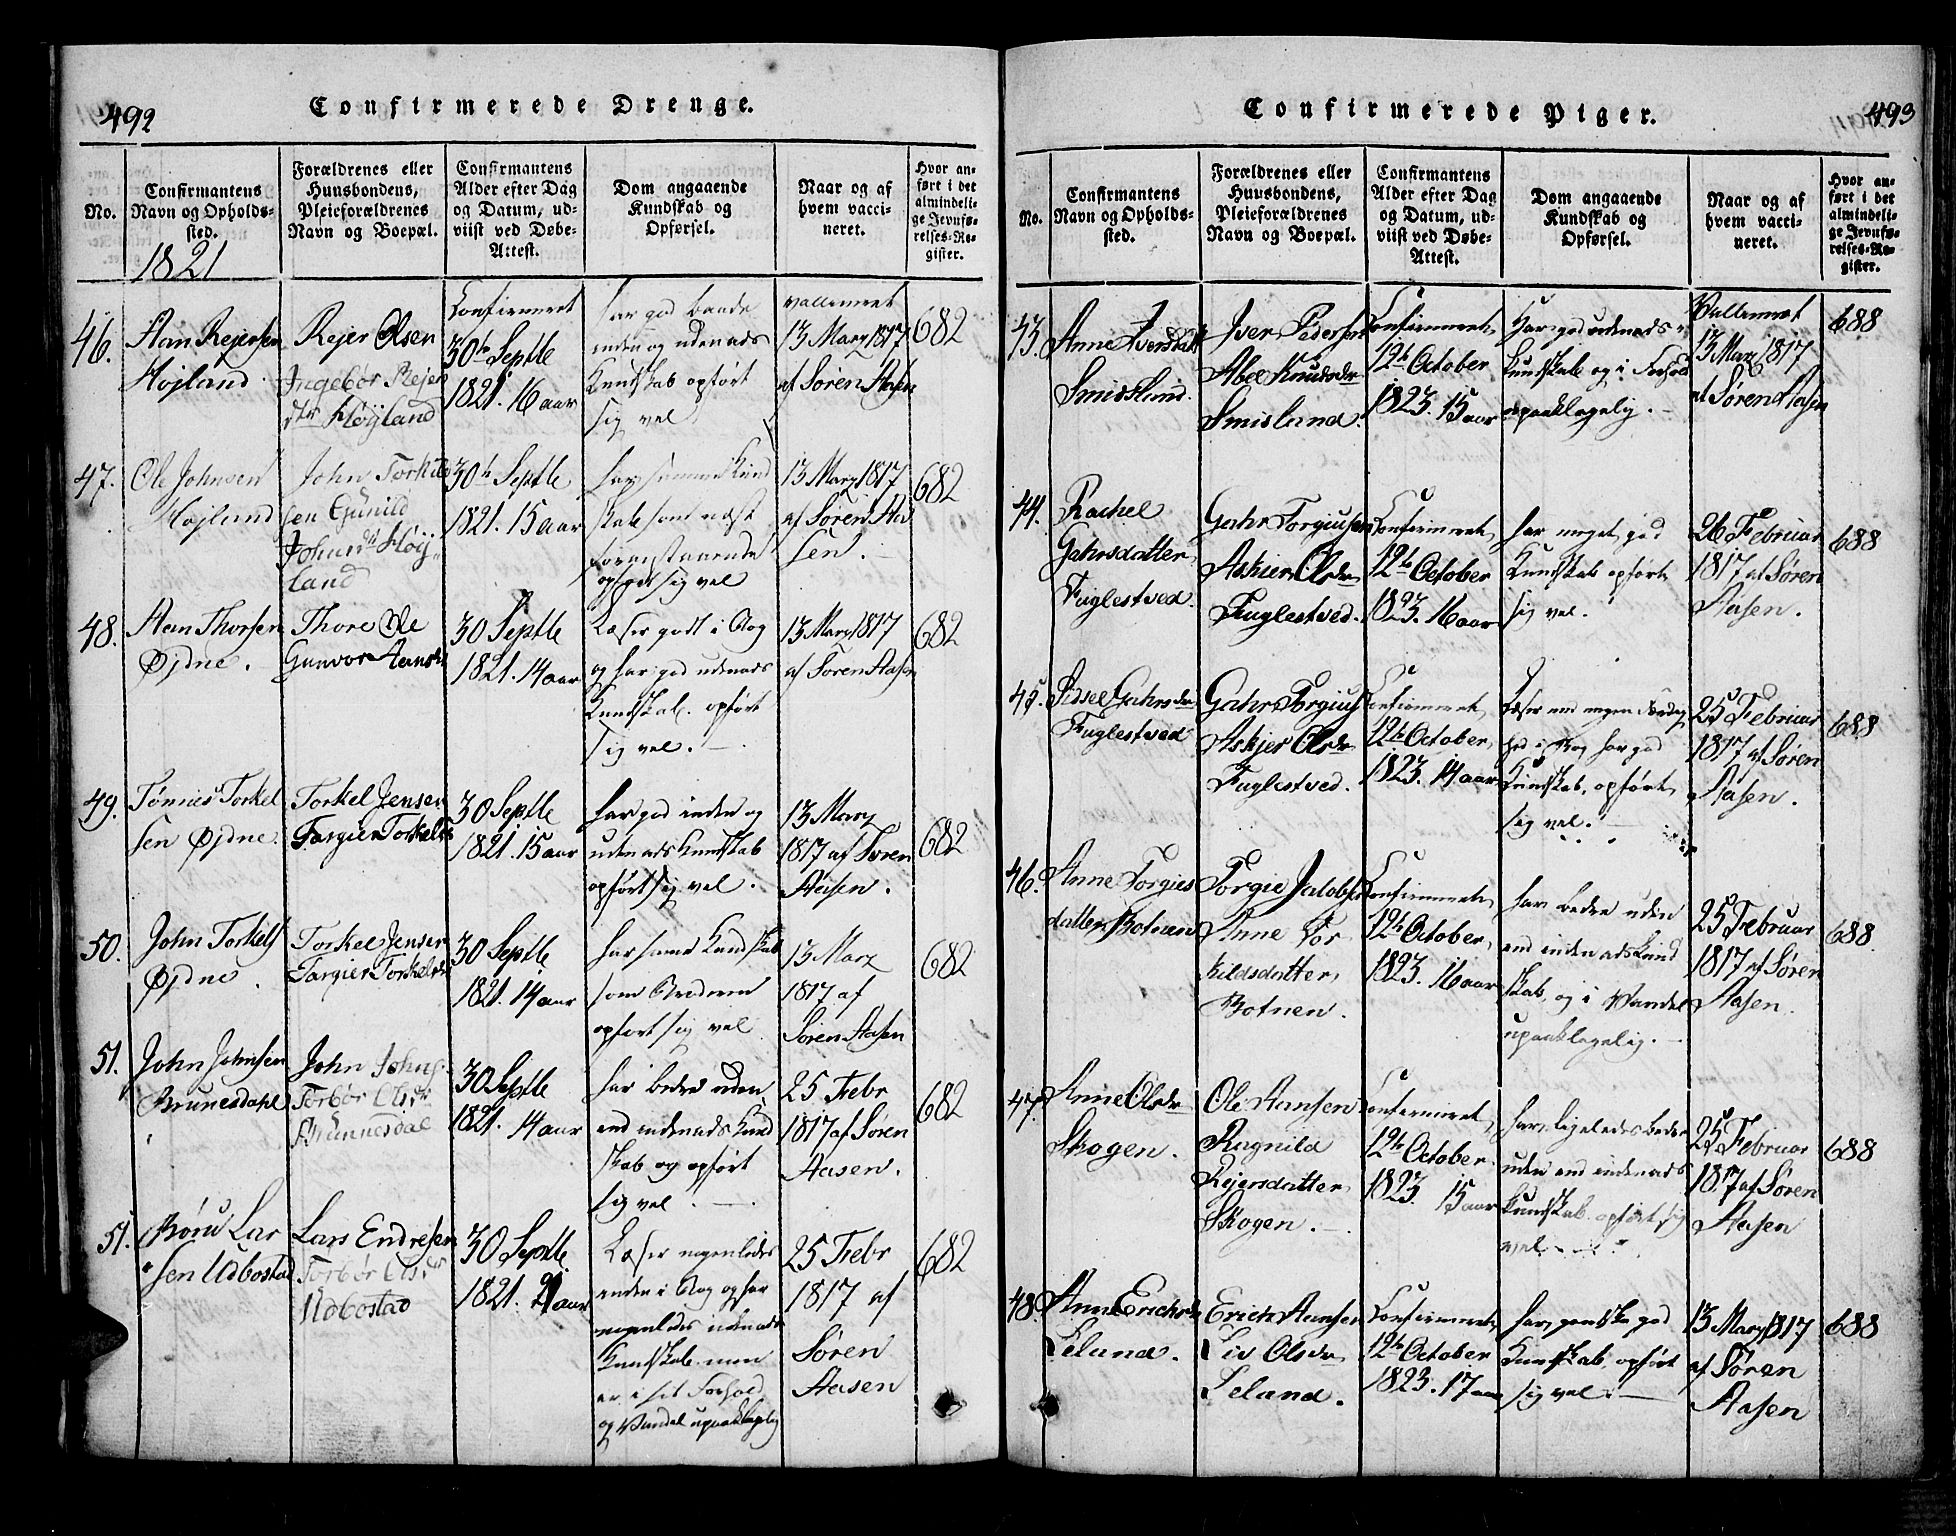 492
Confirmerede Drenge.
No.
Confirmantens
Navn og Opholds-
sted.
1821
Forældrenes eller
Huusbondens,
Pleieforældrenes
Navn og Boepæl.
Confirmantens
Alder efter Dag
og Datum, ud-
viist ved Døbe-
Attest.
Dom angaaende
Kundskab og
Opførsel.
Naar og af
hvem vacci-
neret.
Hvor an-
ført i det
almindeli-
ge Jevnfø-
relses-Re-
gister.
46.
Aan Rejersen
Højland
Rejer Olsen
Ingebør Rejer
dtr Høyland
Confirmeret
30te Septbe
1821. 16 aar
har god baade
inden og udenads
Kundskab opført
sig vel
vakseneret
13 Marz 1817
af Søren Aasen
682
47.
Ole Johnsen
Højland
John Torkild
sen Gunild
Johnsdt Høij-
land
30te Septbe
1821. 15 aar
har samme Kund
skab som næst
foranstaaende
opført sig vel
13 Marz 1817
af Søren Aa
sen.
682
48.
Aan Thorsen
Øjdne.
Thore Ole
Gunvor Aansdr
30 Septbe
1821. 14 aar
Læser godt i Bog
og har god udenads
Kundskab. opført
sig vel. —
13 Marz 1817
af Søren Aasen
682
49.
Tønnes Torkel
sen Øjdne.
Torkel Jensen
Targier Torkelsdr
30 Septbe
1821. 15 aar
har god inden og
udenads Kundskab
opført sig vel.
13 Marz
1817 af Søren
Aasen.
682
50.
John Torkels
Øjdne.
Torkel Jensen
Targier Torkelsdr
30 Septbe
1821. 14 aar
har samme Kundskab
som Broderen
opført sig vel
13 Marz
1817 af
Søren Aasen
682
51.
John Johnsen
Brunesdahl
John Johns
Torbør Olsdr
Brunnesdal
30 Septbe
1821. 14 aar
har bedre uden
end indenads Kund
skab og opført
sig vel. —
25 Febr
1817 af Søren
Aasen.
682
51.
Børu Lar
sen Udbostad
Lars Endresen
Torbør Olsdr
Udbostad
30 Septbe
1821. 21 aar
Læser nogenledes
inden i Bog og har
nogenledes udenads
Kundskab. men
er i sit Forhold
og Vandel upaaklagelig
25 Febr
1817 af
Søren
Aasen
682
493
Confirmerede Piger.
No.
Confirmantens
Navn og Opholds-
sted.
Forældrenes eller
Huusbondens,
Pleieforældrenes
Navn og Boepæl.
Confirmantens
Alder efter Dag
og Datum, ud-
viist ved Døbe-
Attest.
Dom angaaende
Kundskab og
Opførsel.
Naar og af
hvem vacci-
neret.
Hvor an-
ført i det
almindeli-
ge Jevnfø-
relses-Re-
gister.
43.
Anne Iversdatt
Smidslund.
Iver Pedersen
Abel Knudsdr
Smisland.
Confirmeret,
12te October
1823. 15 aar
Har god udenads
Kundskab og i Forhold
upaaklagelig. —
Vakseneret
13 Marz 1817
af Søren Aasen
688
44.
Rachel
Gahrsdatter,
Fuglestved.
Gahr Torgiusen
Askier Olsdr
Fuglestved.
Confirmeret,
12te October
1823. 16 aar
har meget god
Kundskab opført
sig vel.
26 Februar
1817 af Søren
Aasen.
688
45.
Sidsel Gahrsdr
Fuglestved
Gahr Torgius
Askjer Olsdr
Fuglestved.
Confirmeret,
12te October,
1823. 14 aar
Læser med nogen Færdig
hed i Bog har god
Kundskab, opført
sig vel. —
25 Februar
1817 af Søren
Aasen.
688
46.
Anne Torgies
datter Botnen
Torgie Jacobsen
Anne Tor
kildsdatter,
Botnen.
Confirmeret,
12te October,
1823. 16 aar
har bedre uden
end indenads Kund
skab, og i Vandel
upaaklagelig. —
25 Februar
1817 af Søren
Aasen.
688.
47.
Anne Olsdr
Skogen.
Ole Aansen
Ragnild
Rejersdatter,
Skogen. —
Confirmeret,
12te October
1823. 15 aar
har ligeledes bedre
uden end indenads
Kundskab opført sig
vel. —
25 Februar
1817 af Søren
Aasen
688
48.
Anne Erichsdr
Leland.
Erich Aansen
Liv Olsdr
Leland.
Confirmeret,
12te October
1823. 17 aar
har ganske god
Kundskab, opført
sig vel. —
13 Marz 1817
af Søren
Aasen
688